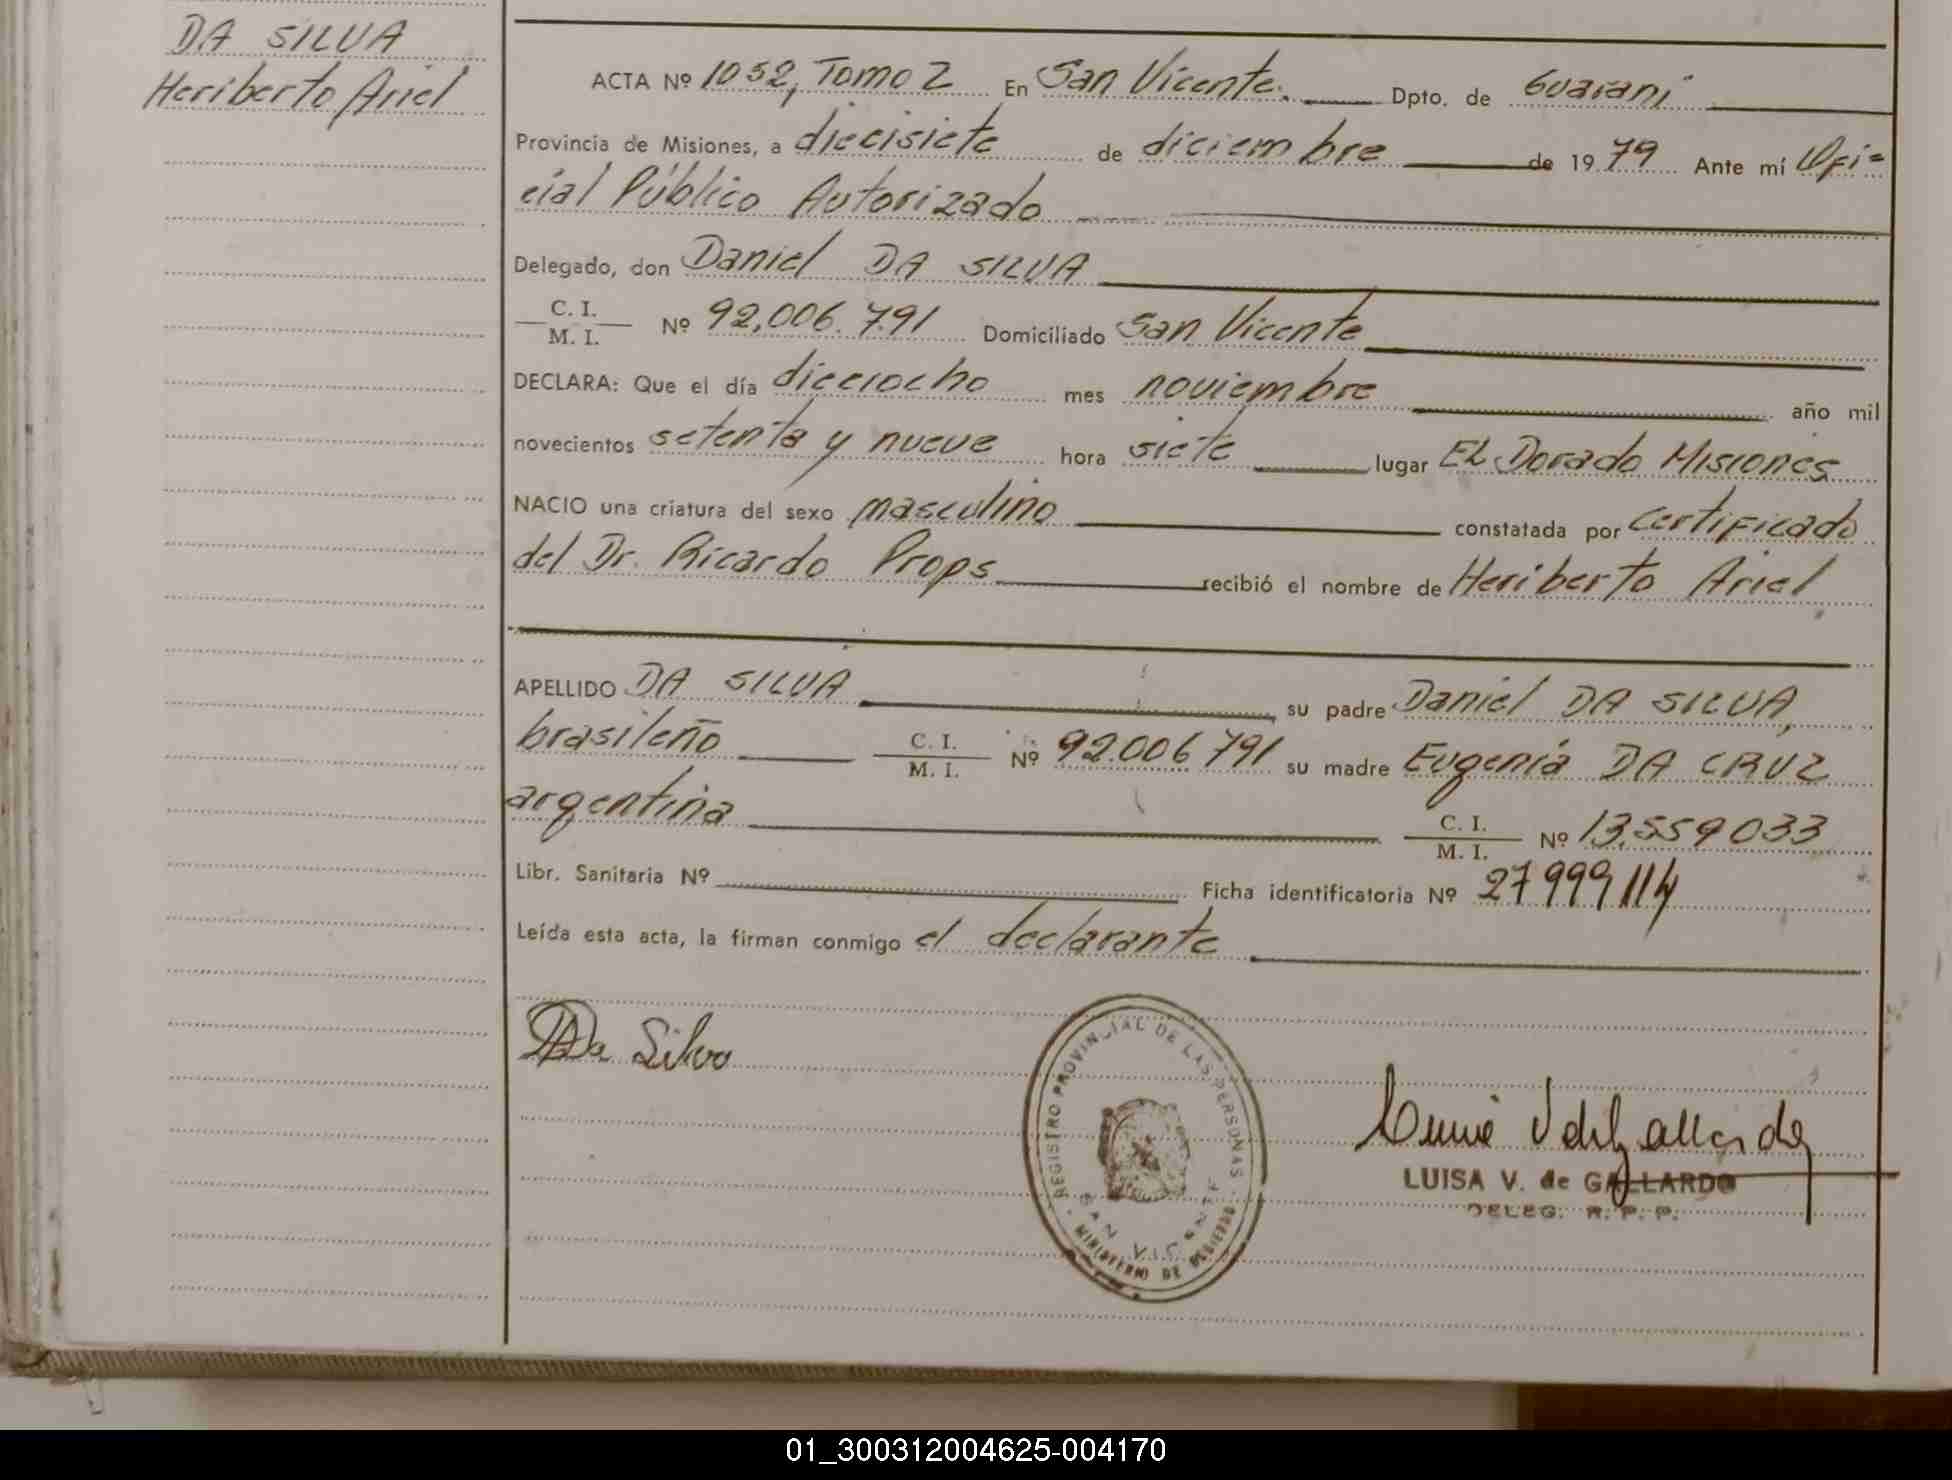 DA SILVA
Heriberto Ariel
ACTA Nº 1052, Tomo 2 En San Vicente. Dpto. de Guaraní
Provincia de Misiones, a diecisiete de diciembre de 1979 Ante mí Ofi=
cial Público Autorizado
Delegado, don Daniel DA SILVA
C. I.
M. I. Nº 92.006.791 Domiciliado San Vicente
DECLARA: Que el día dieciocho mes noviembre año mil
novecientos setenta y nueve hora siete lugar EL Dorado Misiones
NACIO una criatura del sexo masculino constatada por certificado
del Dr. Ricardo Props recibió el nombre de Heriberto Ariel
APELLIDO DA SILVA su padre Daniel DA SILVA,
brasileño C. I. M. I. Nº 92.006 791 su madre Eugenia DA CRUZ
argentina C. I. M. I. Nº 13.559 033
Libr. Sanitaria Nº Ficha identificatoria Nº 27999114
Leída esta acta, la firman conmigo el declarante
Da Silva
REGISTRO PROVINCIAL DE LAS PERSONAS
SAN VICENTE
MINISTERIO DE GOBIERNO
LUISA V. de GALLARDO
DELEG. R. P. P.
01_300312004625-004170